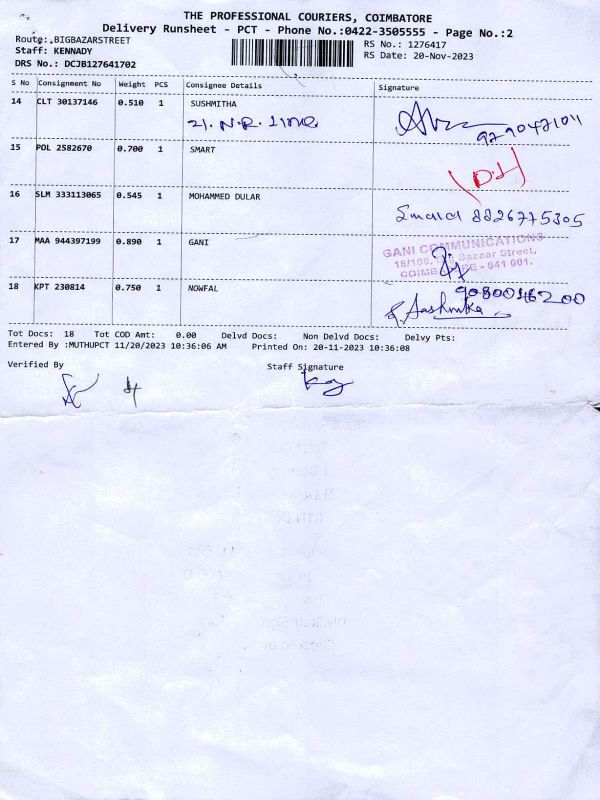 THE PROFESSIONAL COURIERS, COIMBATORE
Delivery Runsheet - PCT - Phone No.:0422-3505555 - Page No.:2
Route: BIGBAZARSTREET
RS No.: 1276417
Staff: KENNADY
RS Date: 20-Nov-2023
DRS No.: DCJB127641702
S No Consignment No Weight PCS Consignee Details Signature
14 CLT 30137146 0.510 1 SUSHMITHA
21. N.R.
15 POL 2582670 0.700 1 SMART
16 SLM 333113065 0.545 1 MOHAMMED DULAR
8826775305
17 MAA 944397199 0.890 1 GANI
GANI COMMUNICATIONS
Bazaar Street,
641 001.
18 KPT 230814 0.750 1 NOWFAL
9080046200
Tot Docs: 18 Tot COD Amt: 0.00 Delvd Docs: Non Delvd Docs: Delvy Pts:
Entered By :MUTHUPCT 11/20/2023 10:36:06 AM Printed On: 20-11-2023 10:36:08
Verified By
Staff Signature